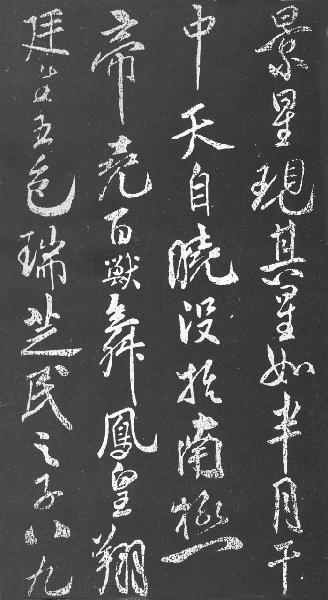 景星現其星如半月于
中天自曉没於南極
帝堯百獸舞鳳皇翔
廷五色瑞芝民之子八九